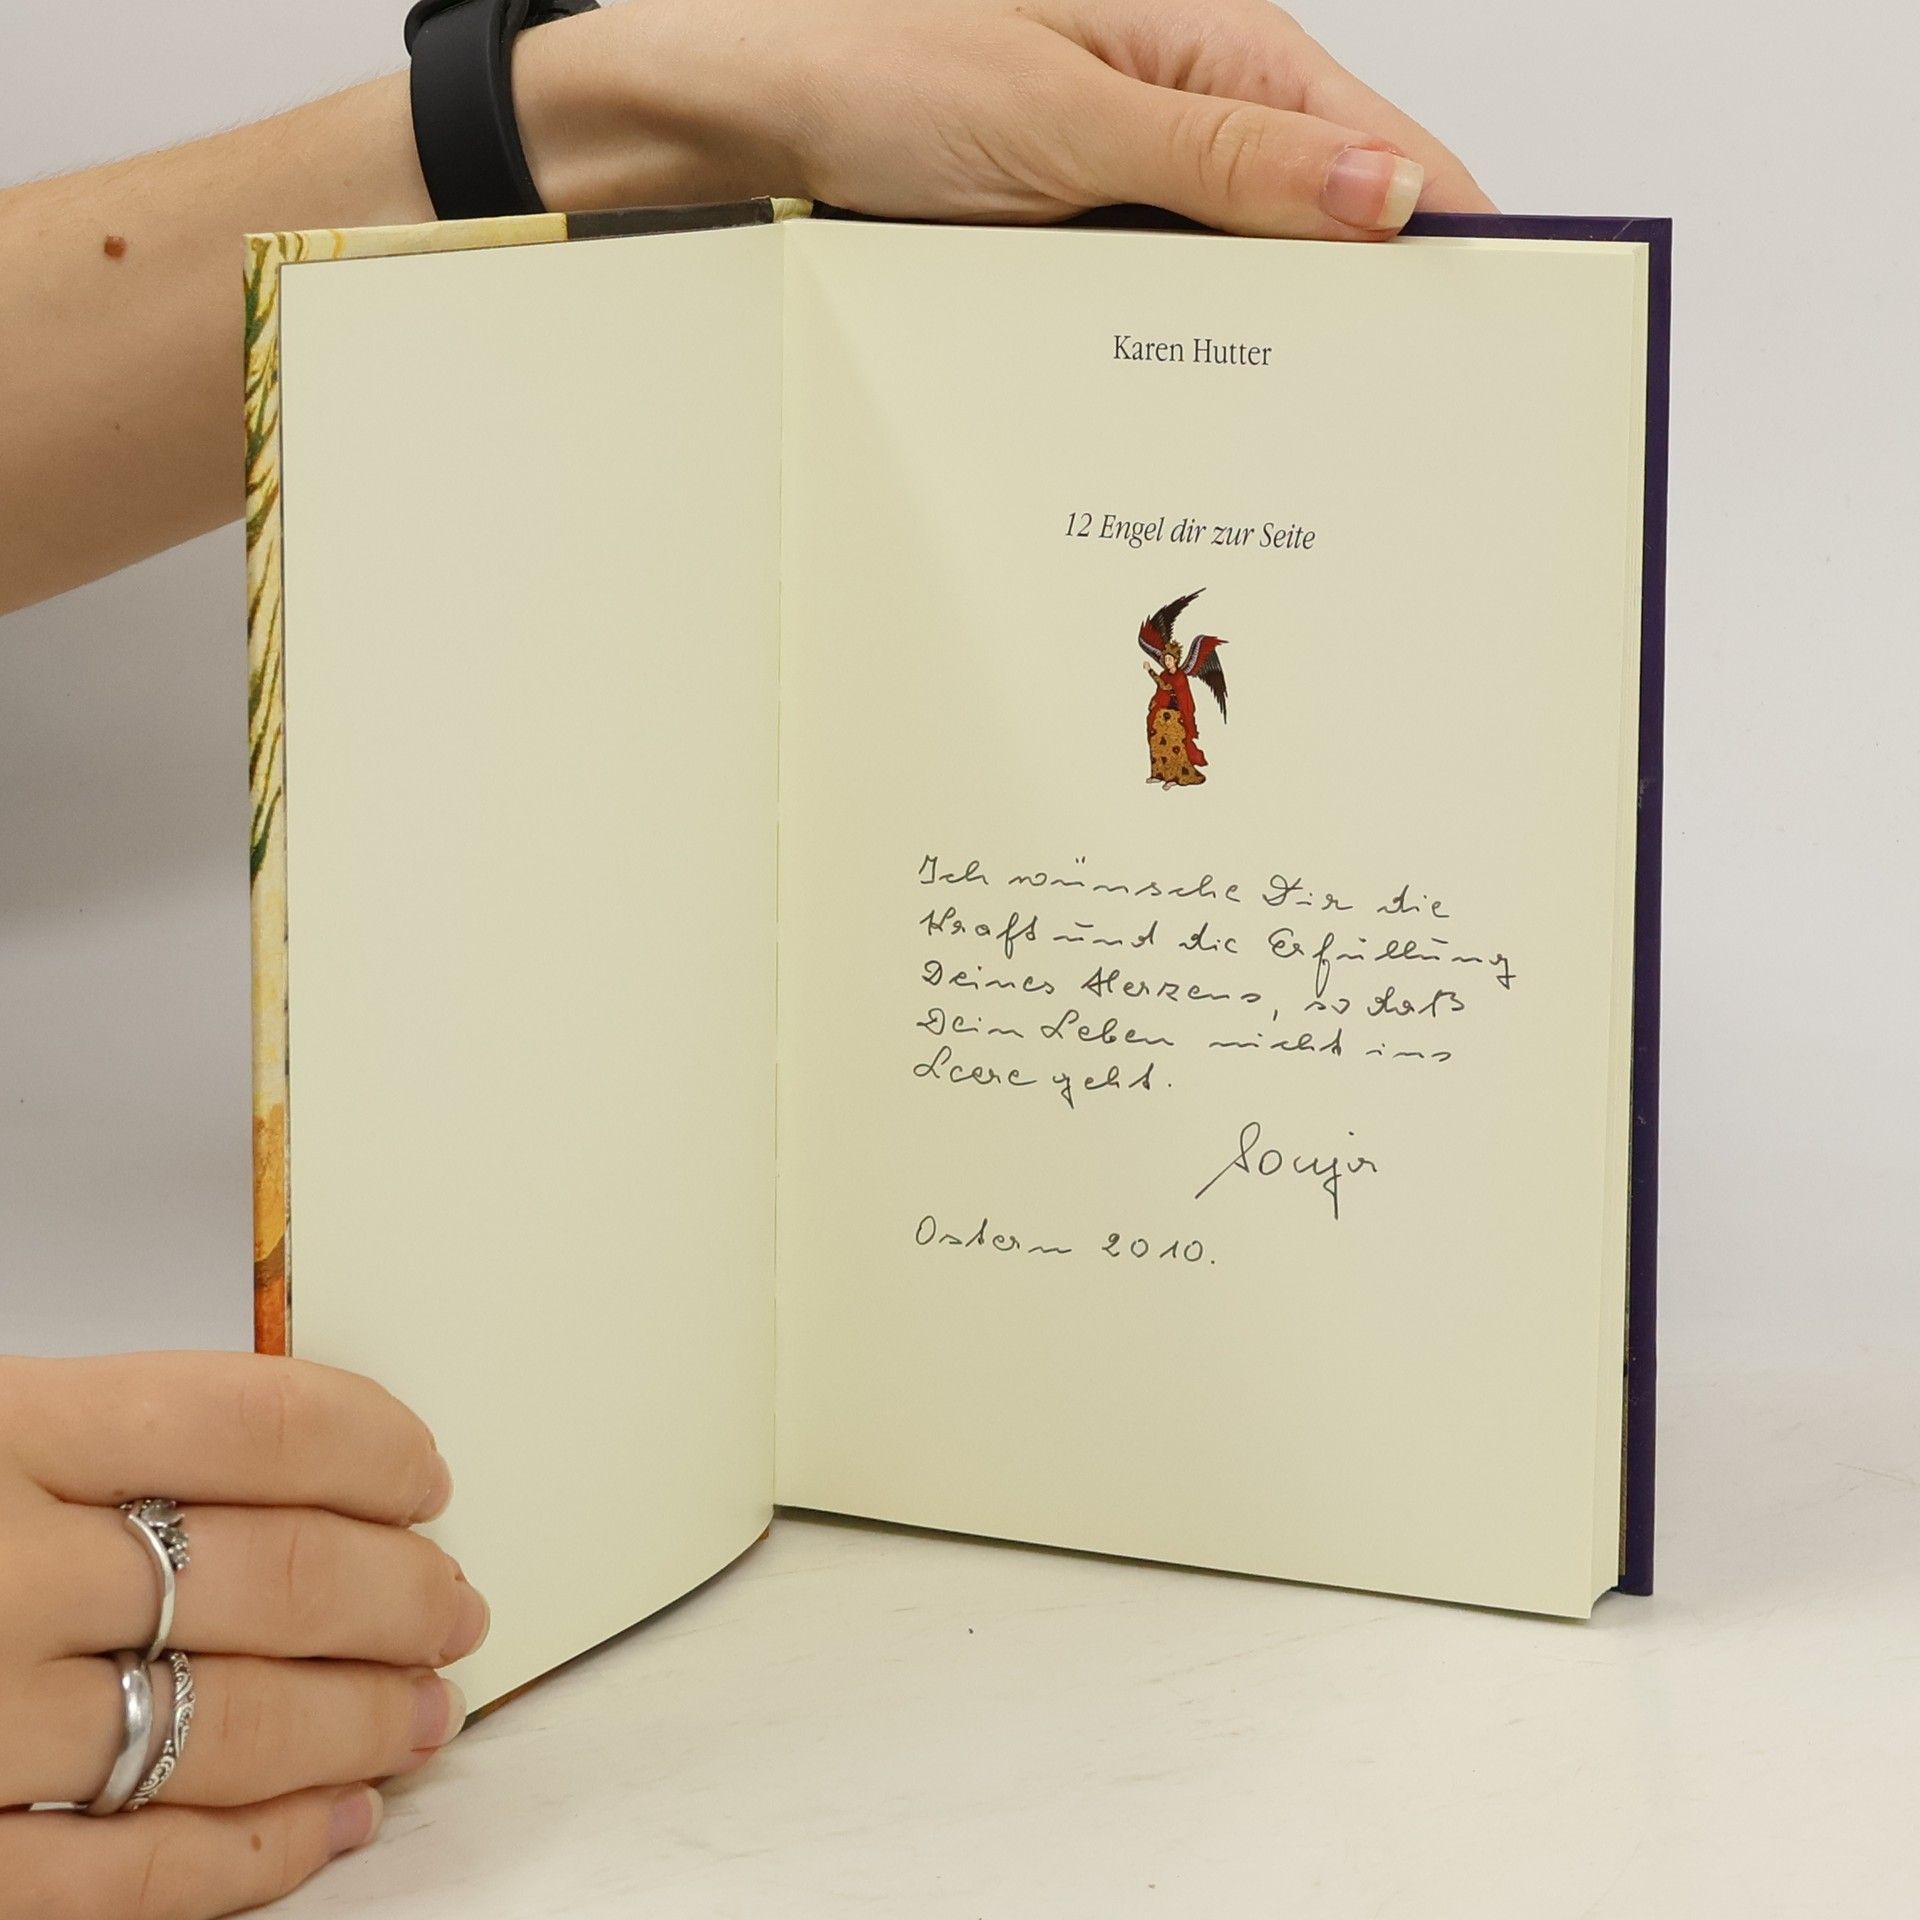 Karen Hutter
12 Engel dir zur Seite
Ich wünsche Dir die
Kraft und die Erfüllung
Deines Herzens, so daß
Dein Leben nicht ins
Leere geht.
Sonja
Ostern 2010.